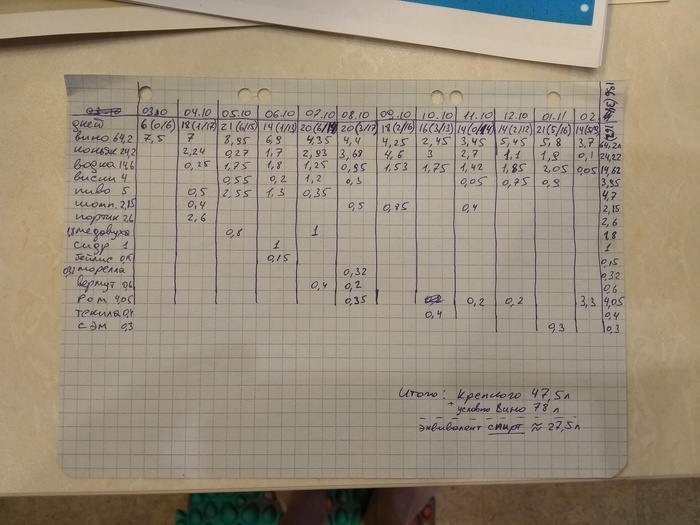 03.10 04.10 05.10 06.10 07.10 08.10 09.10 10.10 11.10 12.10 01.11 02.
дней 6 (0/6) 18 (1/17) 21 (6/15) 14 (1/13) 20 (6/14) 20 (3/17) 18 (2/16) 16 (3/13) 14 (0/14) 14 (2/12) 21 (5/16)
вино 64,2 7,5 7 8,95 6,9 4,35 4,4 4,25 2,45 3,45 5,45 5,8 3,7 64,2
коньяк 24,2 2,24 0,27 1,7 2,93 3,68 4,6 3 2,7 1,1 1,9 0,1 24,22
водка 14,6 0,25 1,75 1,8 1,25 0,95 1,53 1,75 1,42 1,85 2,05 0,05 14,62
виски 4 0,55 0,2 1,2 0,3 0,05 0,75 0,9 3,95
пиво 5 0,5 2,55 1,3 0,35 4,7
шамп. 2,15 0,4 0,5 0,75 0,4 2,15
портик 2,6 2,6 2,6
1,8 медовуха 0,8 1 1,8
сидр 1 1 1
бейлис 0,15 0,15 0,15
0,32 морелла 0,32 0,32
вермут 0,6 0,4 0,2 0,6
ром 4,05 0,35 0,2 0,2 3,3 4,05
текила 0,4 0,4 0,4
сэм 0,3 0,3 0,3
Итого: Крепкого 47,5л
+ условно Вино 78 л
эквивалент спирт ≈ 27,5л